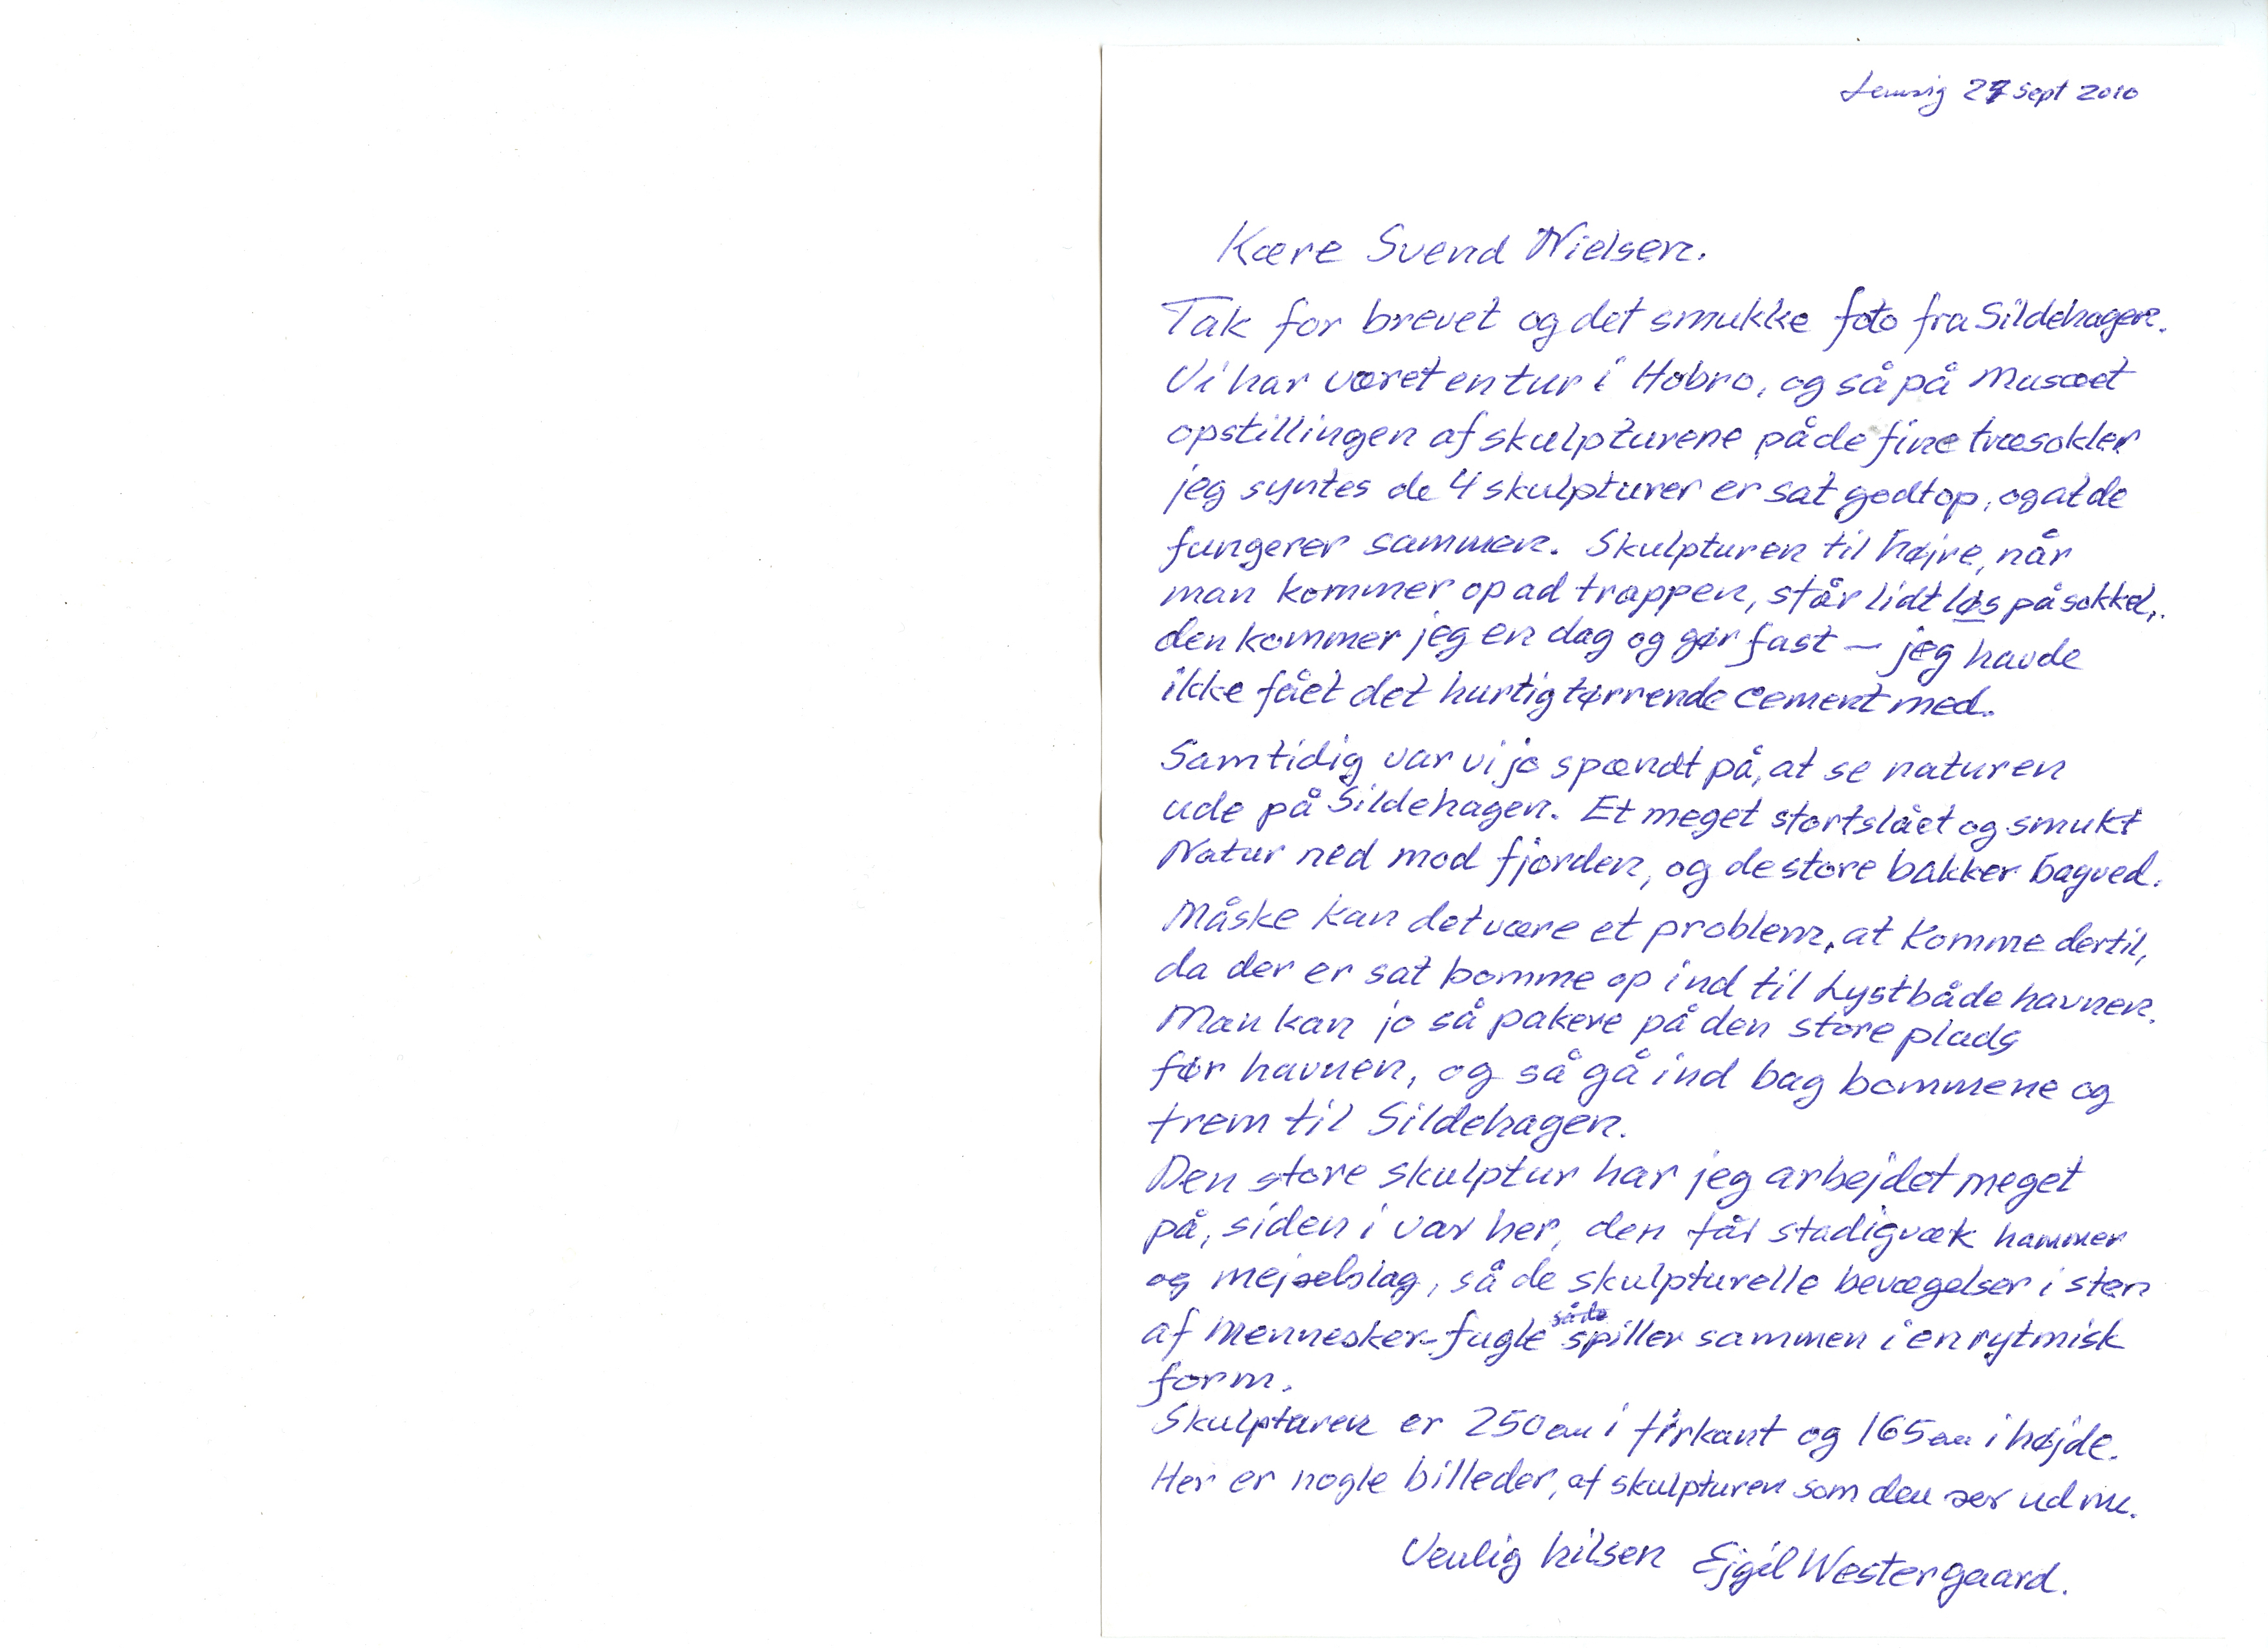 Lemvig 27 Sept 2010
Kære Svend Nielsen.
Tak for brevet og det smukke foto fra Sildehagen.
Vi har været en tur i Hobro, og så på Musæet
opstillingen af skulpturene på de fine træsokler
jeg syntes de 4 skulpturer er sat godt op, og at de
fungerer sammen. Skulpturen til højre, når
man kommer op ad trappen, står lidt løs på sokkel,.
den kommer jeg en dag og gør fast – jeg havde
ikke fået det hurtigtørrende cement med.
Samtidig var vi jo spændt på, at se naturen
ude på Sildehagen. Et meget stortslået og smukt
Natur ned mod fjorden, og de store bakker bagved.
Måske kan det være et problem, at komme dertil,
da der er sat bomme op ind til Lystbåde havnen.
Man kan jo så pakere på den store plads
før havnen, og så gå ind bag bommene og
frem til Sildehagen.
Den store skulptur har jeg arbejdet meget
på, siden i var her, den får stadigvæk hammer
og mejselslag, så de skulpturelle bevægelser i sten
af mennesker-fugle så de spiller sammen i en rytmisk
form.
Skulpturen er 250 cm i firkant og 165 cm i højde.
Her er nogle billeder, af skulpturen som den ser ud nu.
Venlig hilsen Ejgil Westergaard.